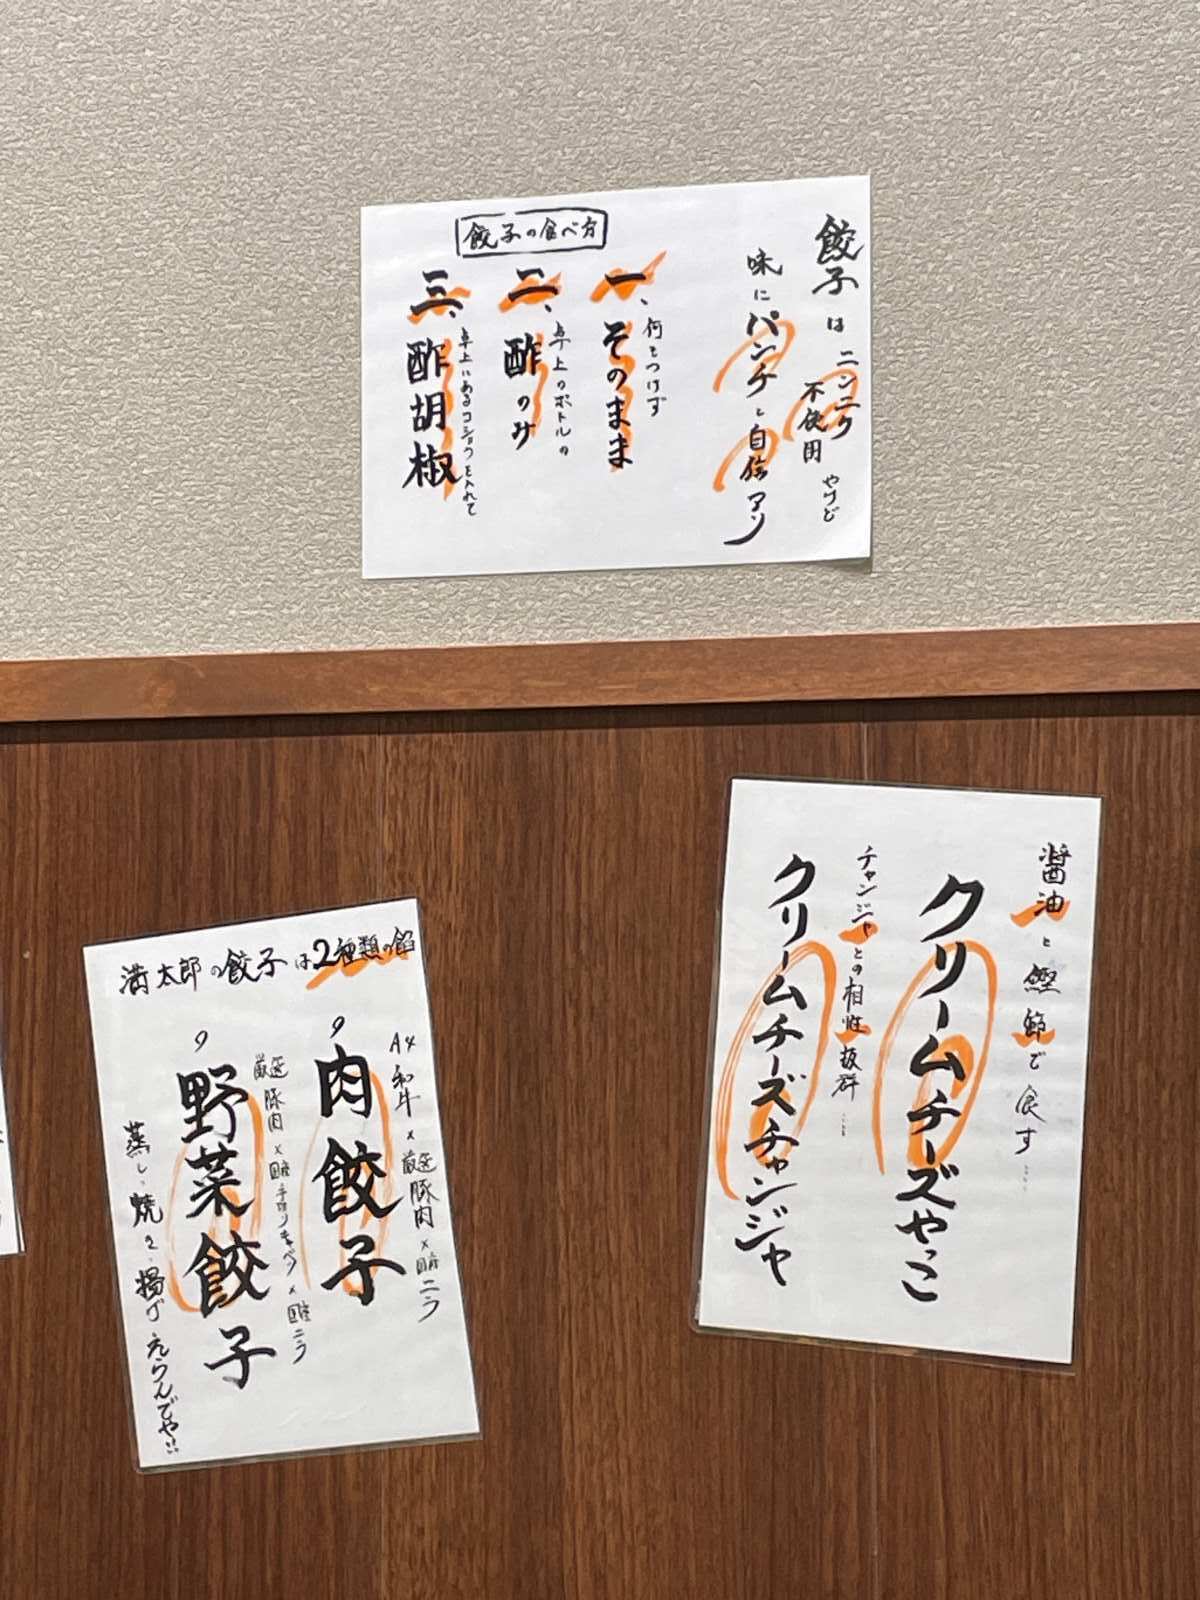 餃子はニンニク
不使用やけど
味にパンチと自信アリ
餃子の食べ方
一、何もつけず
そのまま
二、卓上のボトルの
酢のみ
三、卓上にあるコショウを入れて
酢胡椒
醤油と鰹節で食す……
クリームチーズやっこ
チャンジャとの相性抜群……
クリームチーズチャンジャ
満太郎の餃子は2種類の餡
A4和牛×厳選豚肉×国産ニラ
肉餃子
厳選豚肉×国産手切りキャベツ×国産ニラ
野菜餃子
蒸し、焼き、揚げえらんでや!!